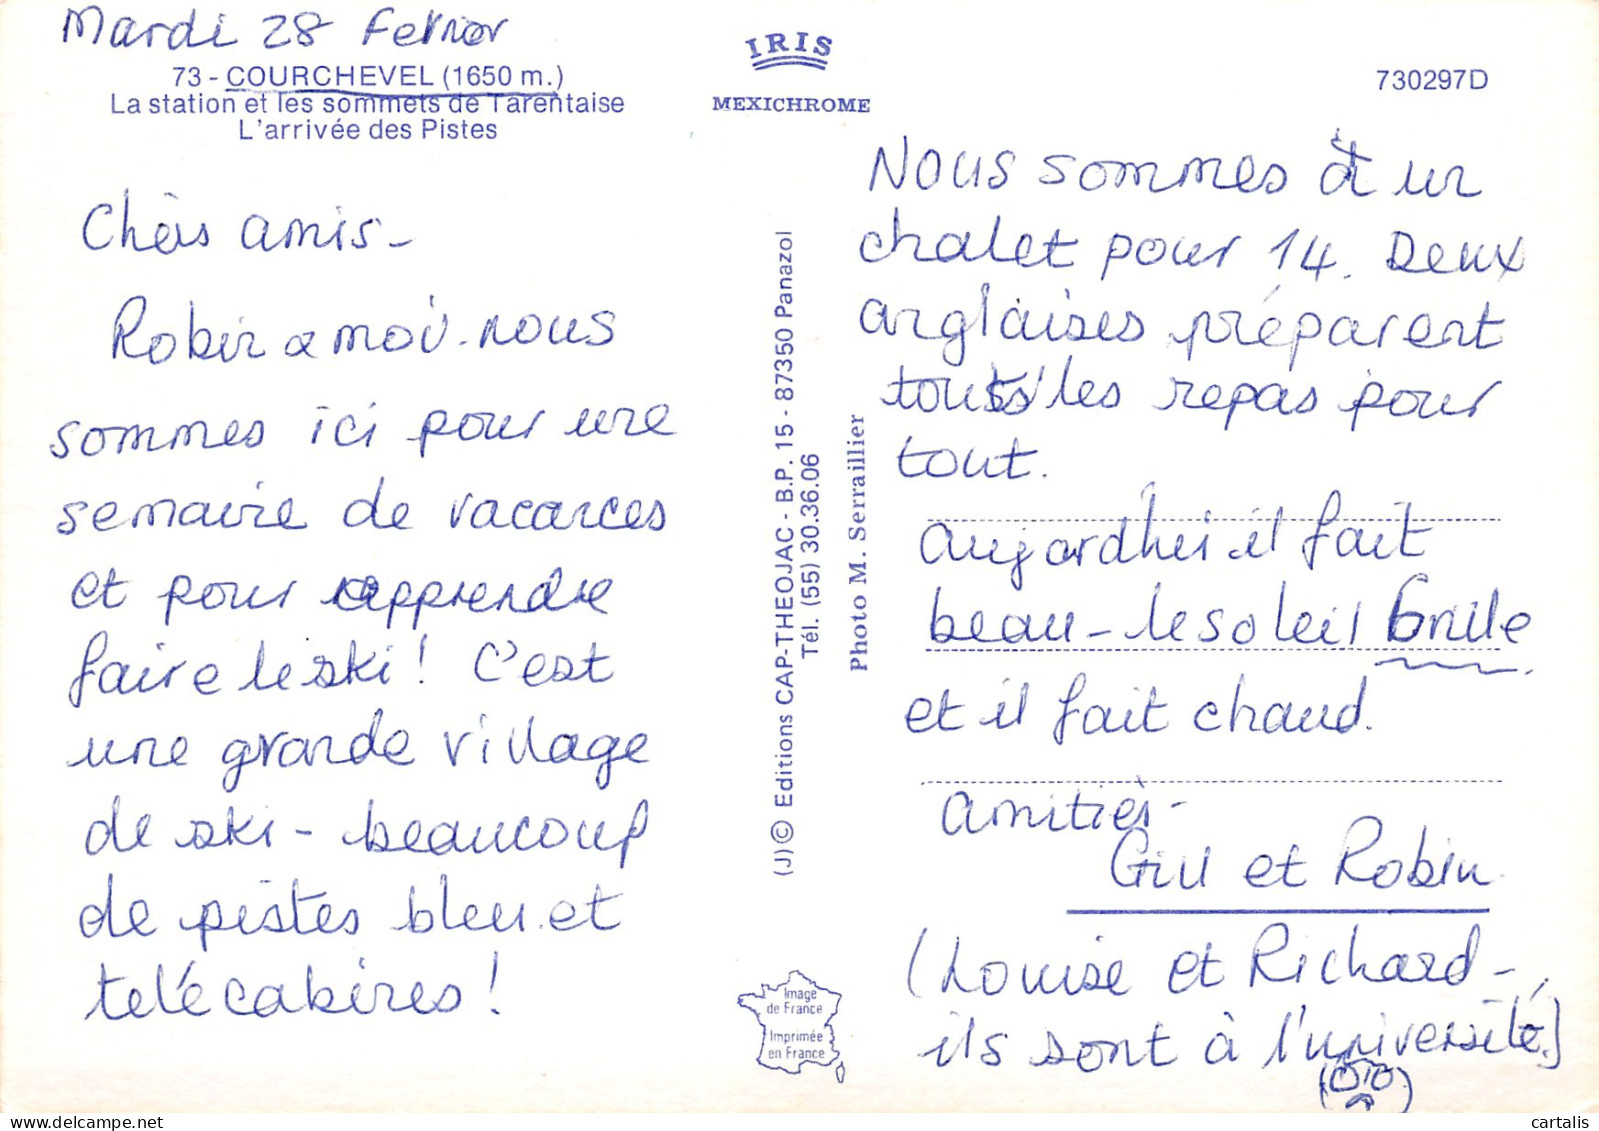 Mardi 28 Fevrier
73 - COURCHEVEL (1650 m.)
La station et les sommets de Tarentaise
L'arrivée des Pistes
Chèrs amis -
Robin & moi. nous
sommes ici pour une
semaine de vacances
et pour apprendre
faire le ski! C'est
une grande village
de ski - beaucoup
de pistes bleu et
télécabines!
IRIS
MEXICHROME
730297D
(J) © Editions CAP-THEOJAC - B.P. 15 - 87350 Panazol
Tél. (55) 30.36.06
Photo M. Serraillier
Image
de France
Imprimée
en France
Nous sommes à un
chalet pour 14. Deux
anglaises préparent
tous les repas pour
tout.
Aujordhui il fait
beau - le soleil brille
et il fait chaud.
Amitiès -
Gill et Robin
(Louise et Richard -
ils sont à l'université)
cartalis